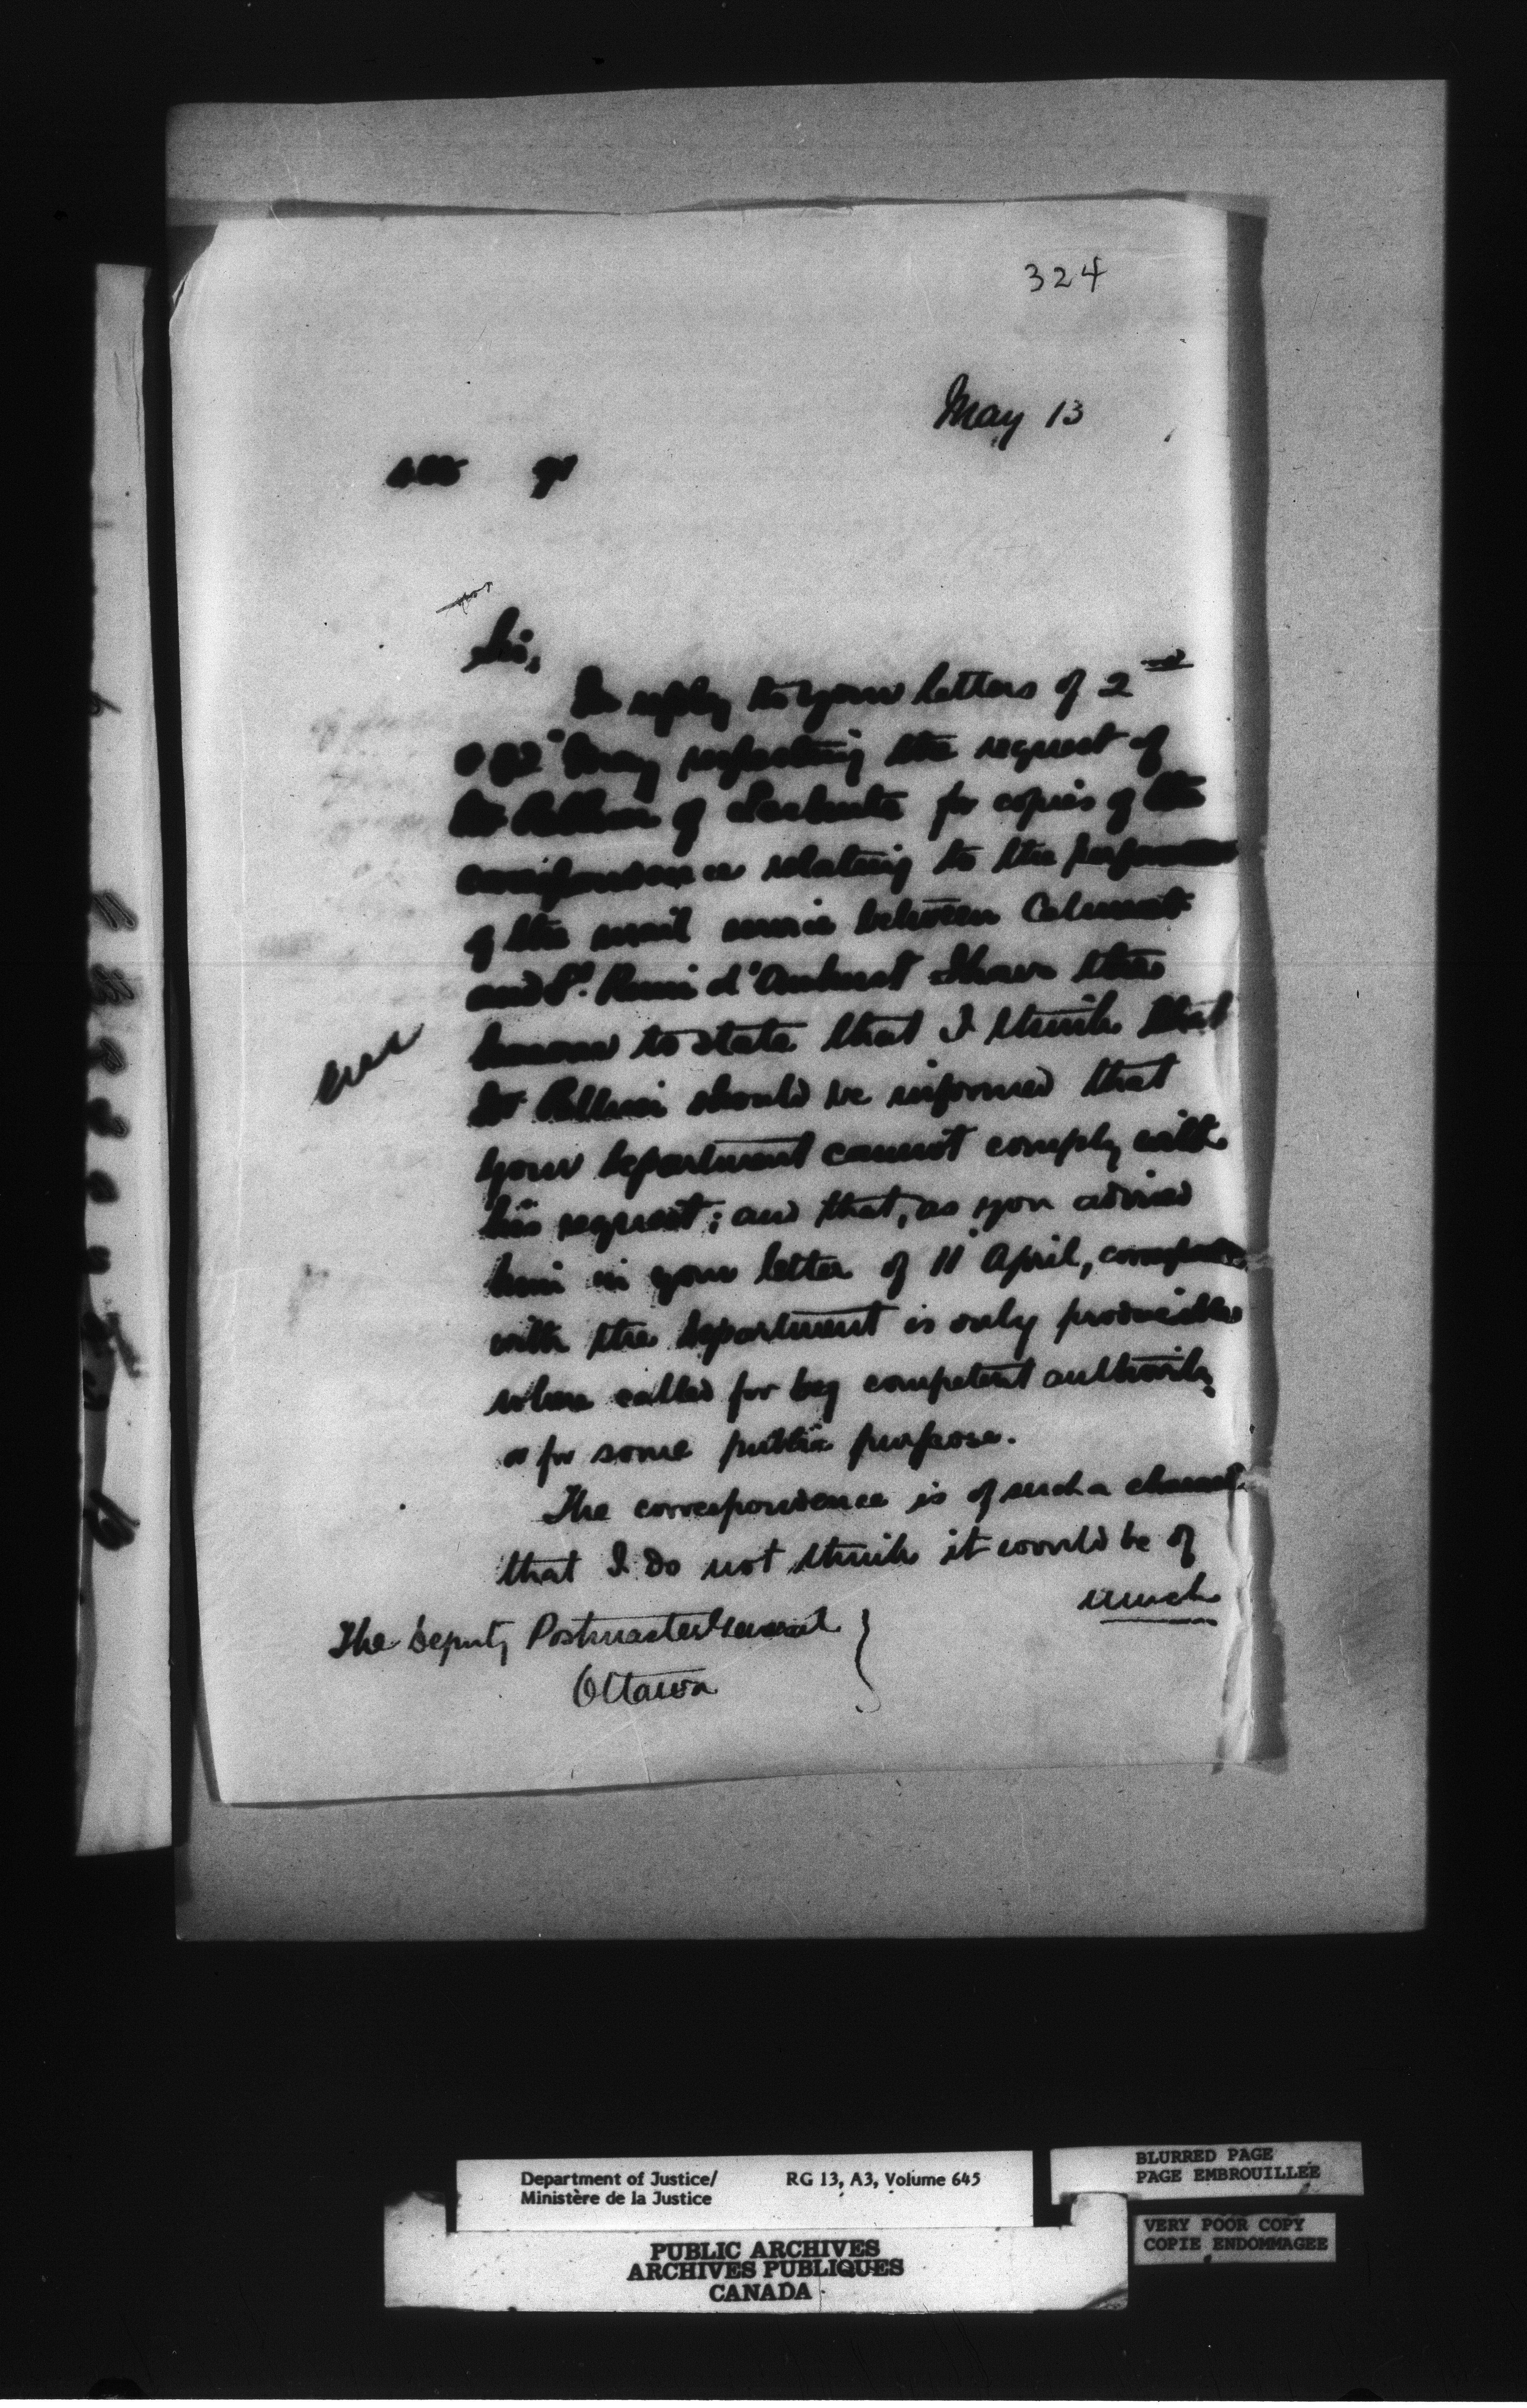 324
May 13
Sir,
In reply to your letters of 2nd
May respecting the request of
of Lachute for copies of the
correspondence relating to the
of the mail service between Calumet
and St. Remi d'Amherst I have the
honour to state that I think that
should be informed that
your Department cannot comply with
his request; and that, as you advised
him in your letter of 11 April,
with the Department is only producible
when called for by competent authority
or for some public purpose.
The correspondence is of such a
that I do not think it would be of
much
The Deputy Postmaster General
Ottawa
Department of Justice/
Ministère de la Justice
RG 13, A3, Volume 645
BLURRED PAGE
PAGE EMBROUILLEE
VERY POOR COPY
COPIE ENDOMMAGEE
PUBLIC ARCHIVES
ARCHIVES PUBLIQUES
CANADA